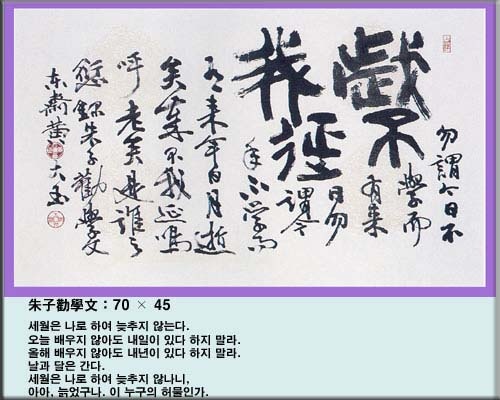 歲不
我延
勿謂今日不
學而
有来
日勿
謂今
年不學而
有来年日月逝
矣歲不我延嗚
呼老矣是誰之
愆錄朱子勸學文
朱子勸學文 : 70 × 45
세월은 나로 하여 늦추지 않는다.
오늘 배우지 않아도 내일이 있다 하지 말라.
올해 배우지 않아도 내년이 있다 하지 말라.
날과 달은 간다.
세월은 나로 하여 늦추지 않나니,
아아, 늙었구나. 이 누구의 허물인가.